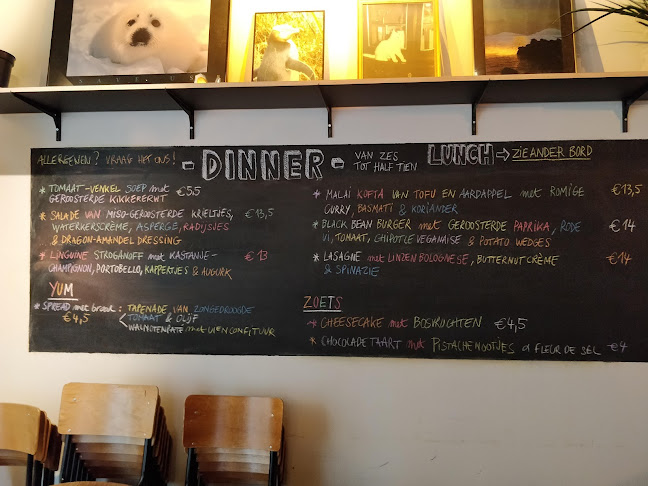 ALLERGENEN? VRAAG HET ONS!
- DINNER -
VAN ZES
TOT HALF TIEN
LUNCH → ZIE ANDER BORD
* TOMAAT-VENKEL SOEP met €5.5
GEROOSTERDE KIKKERERWT
* SALADE VAN MISO-GEROOSTERDE KRIELTJES, €13,5
WATERKERSCRÈME, ASPERGE, RADIJSJES
& DRAGON-AMANDEL DRESSING
* LINGUINE STROGANOFF met KASTANJE- €13
CHAMPIGNON, PORTOBELLO, KAPPERTJES & AUGURK
YUM
* SPREAD met brood: TAPENADE VAN ZONGEDROOGDE
€4,5 TOMAAT & OLIJF
WALNOTENPATÉ met UIENCONFITUUR
* MALAI KOFTA VAN TOFU EN AARDAPPEL met ROMIGE €13,5
CURRY, BASMATI & KORIANDER
* BLACK BEAN BURGER met GEROOSTERDE PAPRIKA, RODE €14
UI, TOMAAT, CHIPOTLE VEGANAISE & POTATO WEDGES
* LASAGNE met LINZEN BOLOGNESE, BUTTERNUT CRÈME €14
& SPINAZIE
ZOETS
* CHEESECAKE met BOSVRUCHTEN €4,5
* CHOCOLADETAART met PISTACHENOOTJES & FLEUR DE SEL €4